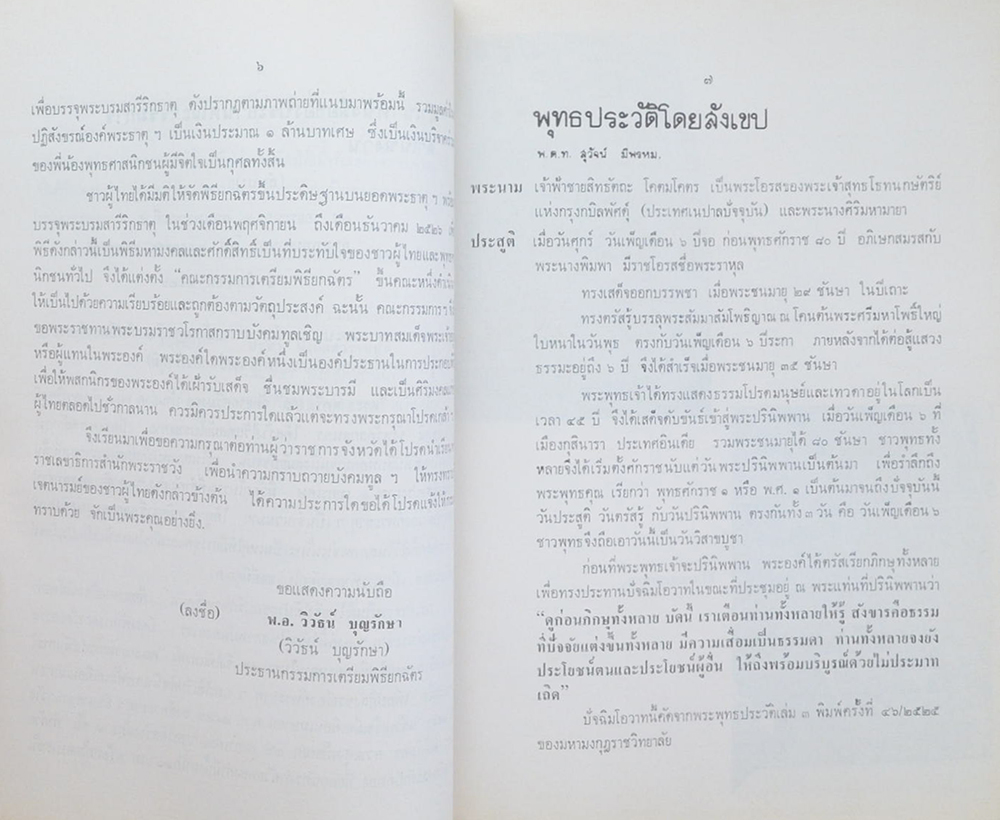 ๖
เพื่อบรรจุพระบรมสารีริกธาตุ ดังปรากฏตามภาพถ่ายที่แนบมาพร้อมนี้
ปฏิสังขรณ์องค์พระธาตุ ฯ เป็นเงินประมาณ ๑ ล้านบาทเศษ ซึ่งเป็นเงินบริจาค
ของพี่น้องพุทธศาสนิกชนผู้มีจิตใจเป็นกุศลทั้งสิ้น
ชาวผู้ไทยได้มีมติให้จัดพิธียกฉัตรขึ้นประดิษฐานบนยอดพระธาตุ ฯ
บรรจุพระบรมสารีริกธาตุ ในช่วงเดือนพฤศจิกายน ถึงเดือนธันวาคม ๒๕๒๖
พิธีดังกล่าวนี้เป็นพิธีมหามงคลและศักดิ์สิทธิ์เป็นที่ประทับใจของชาวผู้ไทยและ
นิกชนทั่วไป จึงได้แต่งตั้ง “คณะกรรมการเตรียมพิธียกฉัตร” ขึ้นคณะหนึ่ง
ให้เป็นไปด้วยความเรียบร้อยและถูกต้องตามวัตถุประสงค์ ฉะนั้น คณะกรรมการ ฯ
ขอพระราชทานพระบรมราชวโรกาสกราบบังคมทูลเชิญ พระบาทสมเด็จพระเจ้า
หรือผู้แทนในพระองค์ พระองค์ใดพระองค์หนึ่งเป็นองค์ประธานในการประกอบ
เพื่อให้พสกนิกรของพระองค์ได้เฝ้ารับเสด็จ ชื่นชมพระบารมี และเป็นศิริมงคล
ผู้ไทยตลอดไปชั่วกาลนาน ควรมิควรประการใดแล้วแต่จะทรงพระกรุณาโปรดเกล้า
จึงเรียนมาเพื่อขอความกรุณาต่อท่านผู้ว่าราชการจังหวัดได้โปรดนำเรียน
ราชเลขาธิการสำนักพระราชวัง เพื่อนำความกราบถวายบังคมทูล ฯ ให้ทรง
เจตนารมย์ของชาวผู้ไทยดังกล่าวข้างต้น ได้ความประการใดขอได้โปรดแจ้งให้
ทราบด้วย จักเป็นพระคุณอย่างยิ่ง.
ขอแสดงความนับถือ
(ลงชื่อ) พ.อ. วิวัธน์ บุญรักษา
(วิวัธน์ บุญรักษา)
ประธานกรรมการเตรียมพิธียกฉัตร
๗
พุทธประวัติโดยสังเขป
พ.ต.ท. สุวัจน์ มีพรหม.
พระนาม เจ้าฟ้าชายสิทธัตถะ โคตมโคตร เป็นพระโอรสของพระเจ้าสุทธโธทนกษัตริย์
แห่งกรุงกบิลพัศดุ์ (ประเทศเนปาลปัจจุบัน) และพระนางศิริมหามายา
ประสูติ เมื่อวันศุกร์ วันเพ็ญเดือน ๖ ปีจอ ก่อนพุทธศักราช ๘๐ ปี อภิเษกสมรสกับ
พระนางพิมพา มีราชโอรสชื่อพระราหุล
ทรงเสด็จออกบรรพชา เมื่อพระชนมายุ ๒๙ ชันษา ในปีเถาะ
ทรงตรัสรู้บรรลุพระสัมมาสัมโพธิญาณ ณ โคนต้นพระศรีมหาโพธิ์ใหญ่
ใบหนาในวันพุธ ตรงกับวันเพ็ญเดือน ๖ ปีระกา ภายหลังจากได้ต่อสู้แสวง
ธรรมะอยู่ถึง ๖ ปี จึงได้สำเร็จเมื่อพระชนมายุ ๓๕ ชันษา
พระพุทธเจ้าได้ทรงแสดงธรรมโปรดมนุษย์และเทวดาอยู่ในโลกเป็น
เวลา ๔๕ ปี จึงได้เสด็จดับขันธ์เข้าสู่พระปรินิพพาน เมื่อวันเพ็ญเดือน ๖ ที่
เมืองกุสินารา ประเทศอินเดีย รวมพระชนมายุได้ ๘๐ ชันษา ชาวพุทธทั้ง
หลายจึงได้เริ่มตั้งศักราชนับแต่วันพระปรินิพพานเป็นต้นมา เพื่อรำลึกถึง
พระพุทธคุณ เรียกว่า พุทธศักราช ๑ หรือ พ.ศ. ๑ เป็นต้นมาจนถึงปัจจุบันนี้
วันประสูติ วันตรัสรู้ กับวันปรินิพพาน ตรงกันทั้ง ๓ วัน คือ วันเพ็ญเดือน ๖
ชาวพุทธจึงถือเอาวันนี้เป็นวันวิสาขบูชา
ก่อนที่พระพุทธเจ้าจะปรินิพพาน พระองค์ได้ตรัสเรียกภิกษุทั้งหลาย
เพื่อทรงประทานปัจฉิมโอวาทในขณะที่ประชุมอยู่ ณ พระแท่นที่ปรินิพพานว่า
“ดูก่อนภิกษุทั้งหลาย บัดนี้ เราเตือนท่านทั้งหลายให้รู้ สังขารคือธรรม
ที่ปัจจัยแต่งขึ้นทั้งหลาย มีความเสื่อมเป็นธรรมดา ท่านทั้งหลายจงยัง
ประโยชน์ตนและประโยชน์ผู้อื่น ให้ถึงพร้อมบริบูรณ์ด้วยไม่ประมาท
เถิด”
ปัจฉิมโอวาทนี้คัดจากพระพุทธประวัติเล่ม ๓ พิมพ์ครั้งที่ ๔๖/๒๕๒๕
ของมหามงกุฎราชวิทยาลัย